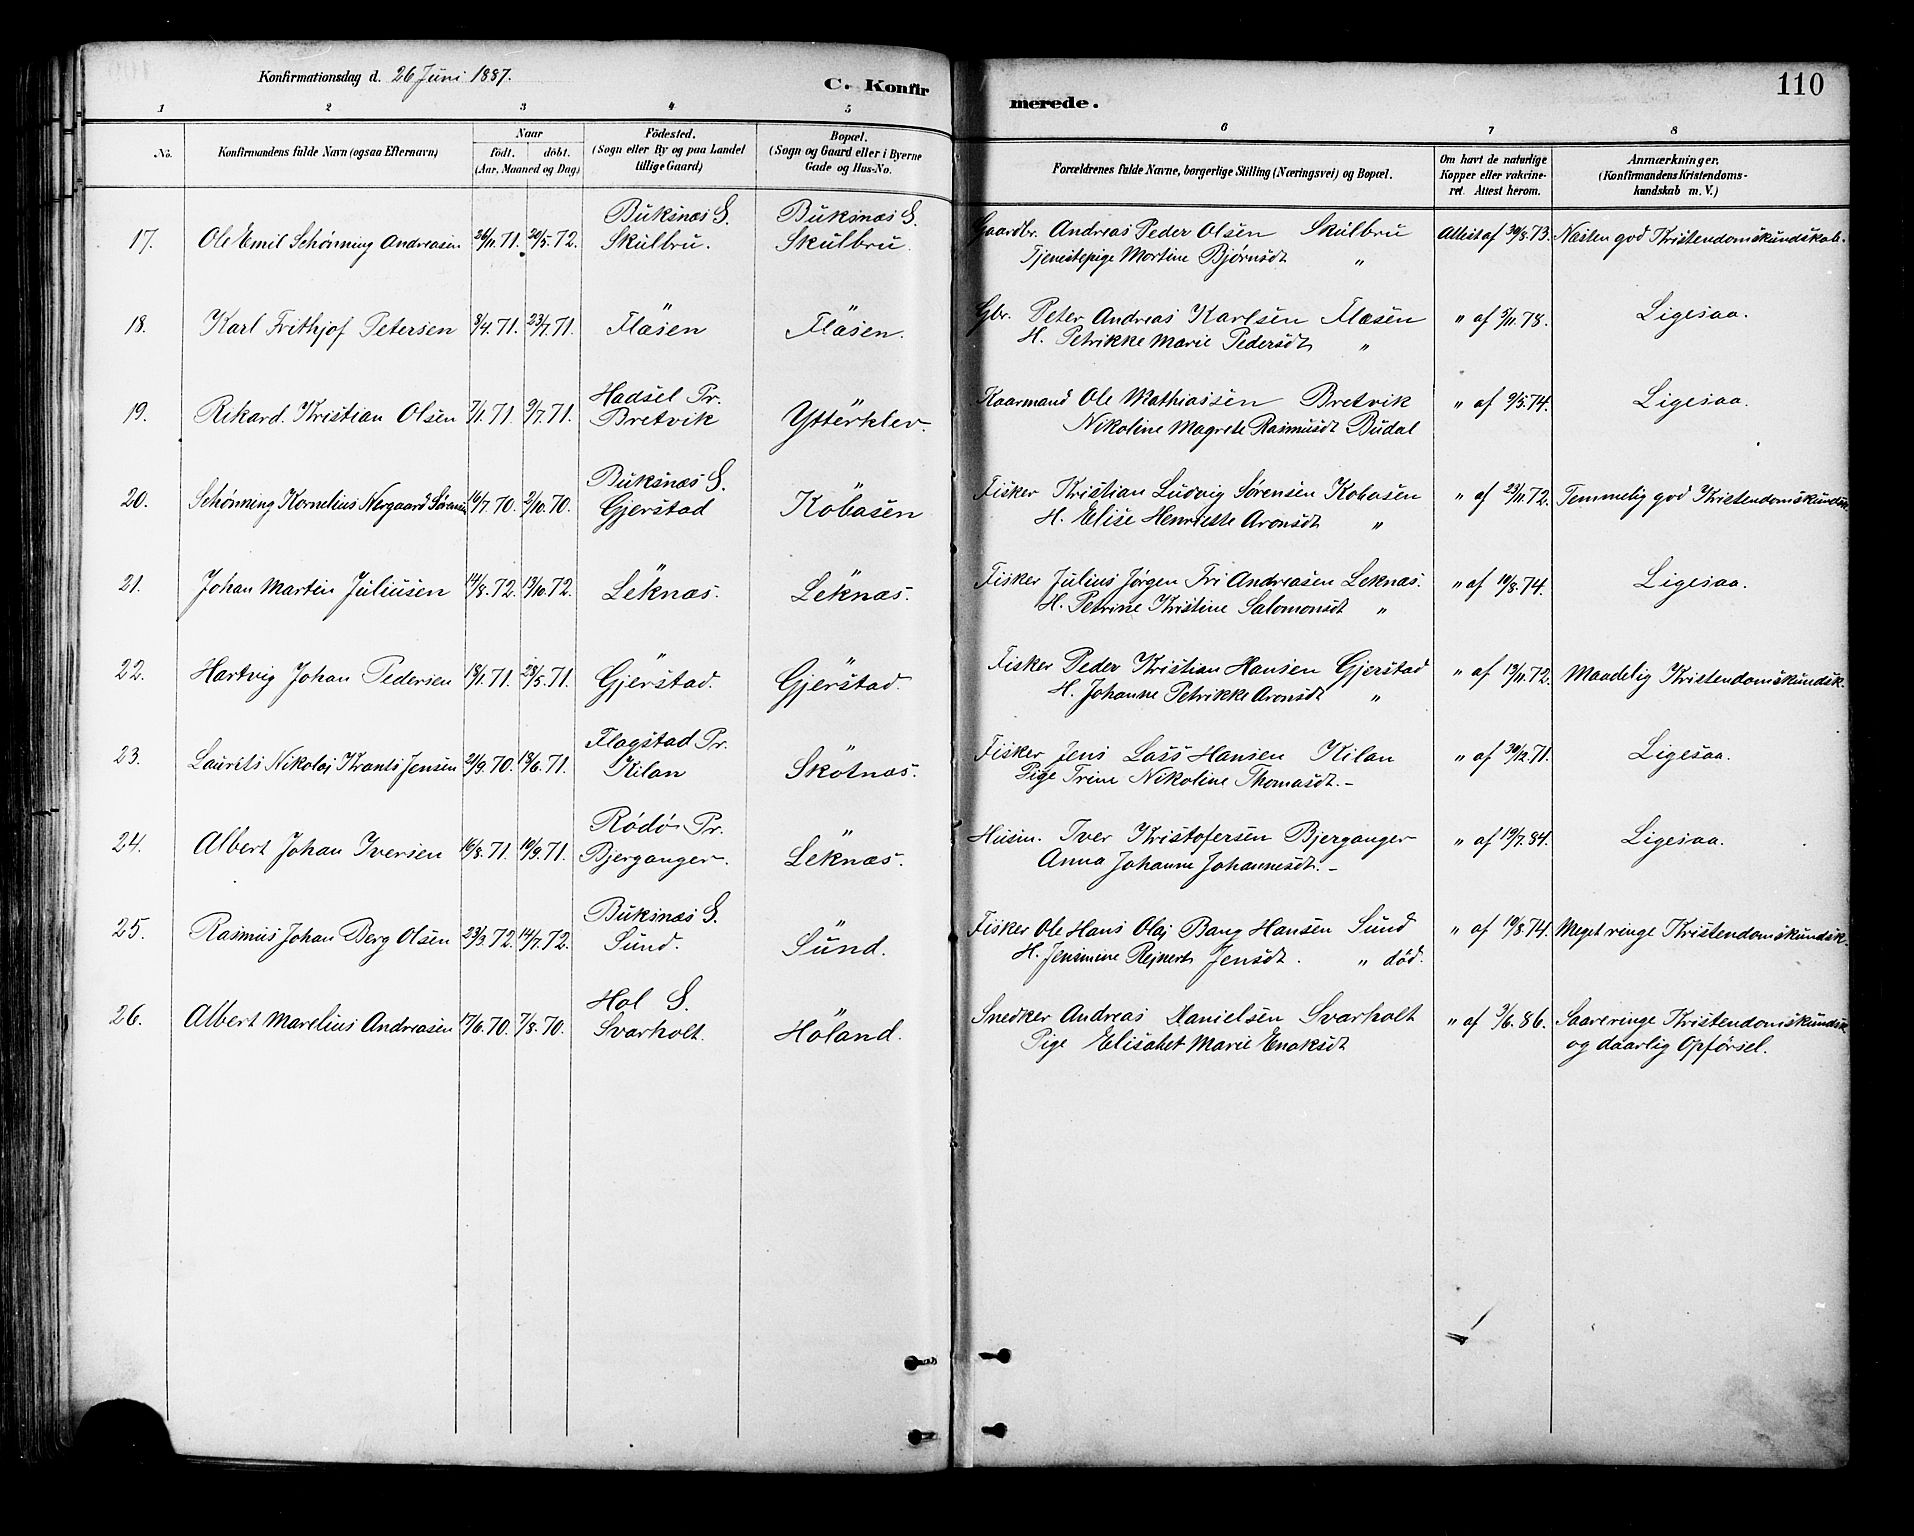 Konfirmationsdag d. 26 Juni 1887.
C. Konfir
merede.
110
1 2 3 4 5 6 7 8
No. Konfirmandens fulde Navn (ogsaa Efternavn) Naar født. døbt. (Aar, Maaned og Dag) Fødested. (Sogn eller By og paa Landet tillige Gaard) Bopæl. (Sogn og Gaard eller i Byerne Gade og Hus-No. Forældrenes fulde Navne, borgerlige Stilling (Næringsvei) og Bopæl. Om havt de naturlige Kopper eller vakcineret. Attest herom. Anmærkninger. (Konfirmandens Kristendomskundskab m. V.)
Buksnæs S. Buksnæs S.
17. Ole Emil Schønning Andreasen 26/11.71. 20/5.72. Skulbru. Skulbru. Gaardbr. Andreas Peder Olsen Skulbru Attest af 30/8.73. Næsten god Kristendomskundskab.
Tjenestepige Mortine Bjørnsdt "
18. Karl Frithjof Petersen 8/4.71. 23/7.71. " Flæsen " Flæsen. Gbr. Peter Andreas Karlsen Flæsen " af 5/11.78. Ligesaa.
H. Petrikke Marie Pedersdt "
Hadsel Pr.
19. Rikard Kristian Olsen 7/1.71. 9/7.71. Bretvik Ytterklev. Kaarmand Ole Mathiassen Bretvik " af 9/5.74. Ligesaa.
Nikoline Magrete Rasmusdt Budal
Buksnæs S.
20. Schønning Kornelius Nergaard Sørensen 16/7.70. 2/10.70. Gjerstad Kobaasen Fisker Kristian Ludvig Sørensen Kobaasen " af 23/11.72. Temmelig god Kristendomskundsk.
H. Elise Henriette Aronsdt "
21. Johan Martin Juliusen 14/8.72. 13/10.72. " Leknæs. " Leknæs. Fisker Julius Jørgen Fri Andreasen Leknæs. " af 19/8.74. Ligesaa.
H. Petrine Kristine Salomonsdt "
22. Hartvig Johan Pedersen 18/1.71. 28/5.71. " Gjerstad. " Gjerstad. Fisker Peder Kristian Hansen Gjerstad " af 13/11.72. Maadelig Kristendomskundsk.
H. Johanne Petrikke Aronsdt "
Flagstad Pr.
23. Laurits Nikolaj Krants Jensen 21/9.70. 18/6.71. Kilan Skotnæs. Fisker Jens Lass Hansen Kilan " af 30/12.71. Ligesaa.
Pige Trine Nikoline Thomasdt. -
Rødø Pr.
24. Albert Johan Iversen 16/8.71. 10/9.71. Bjerganger. " Leknæs. Husm. Iver Kristofersen Bjerganger " af 19/7.84. Ligesaa.
Anna Johanne Johannesdt. -
Buksnæs S.
25. Rasmus Johan Berg Olsen 23/3.72. 14/7.72. Sund. " Sund. Fisker Ole Hans Olaj Bang Hansen Sund " af 19/8.74. Meget ringe Kristendomskundsk.
H. Jensine Rejnert Jensdt. " død.
Hol S.
26. Albert Marelius Andreasen 17/6.70. 7/8.70. Svarholt. " Høland. Snedker Andreas Danielsen Svarholt " af 3/6.86. Saare ringe Kristendomskundsk
Pige Elisabet Marie Enoksdt og daarlig Opførsel.